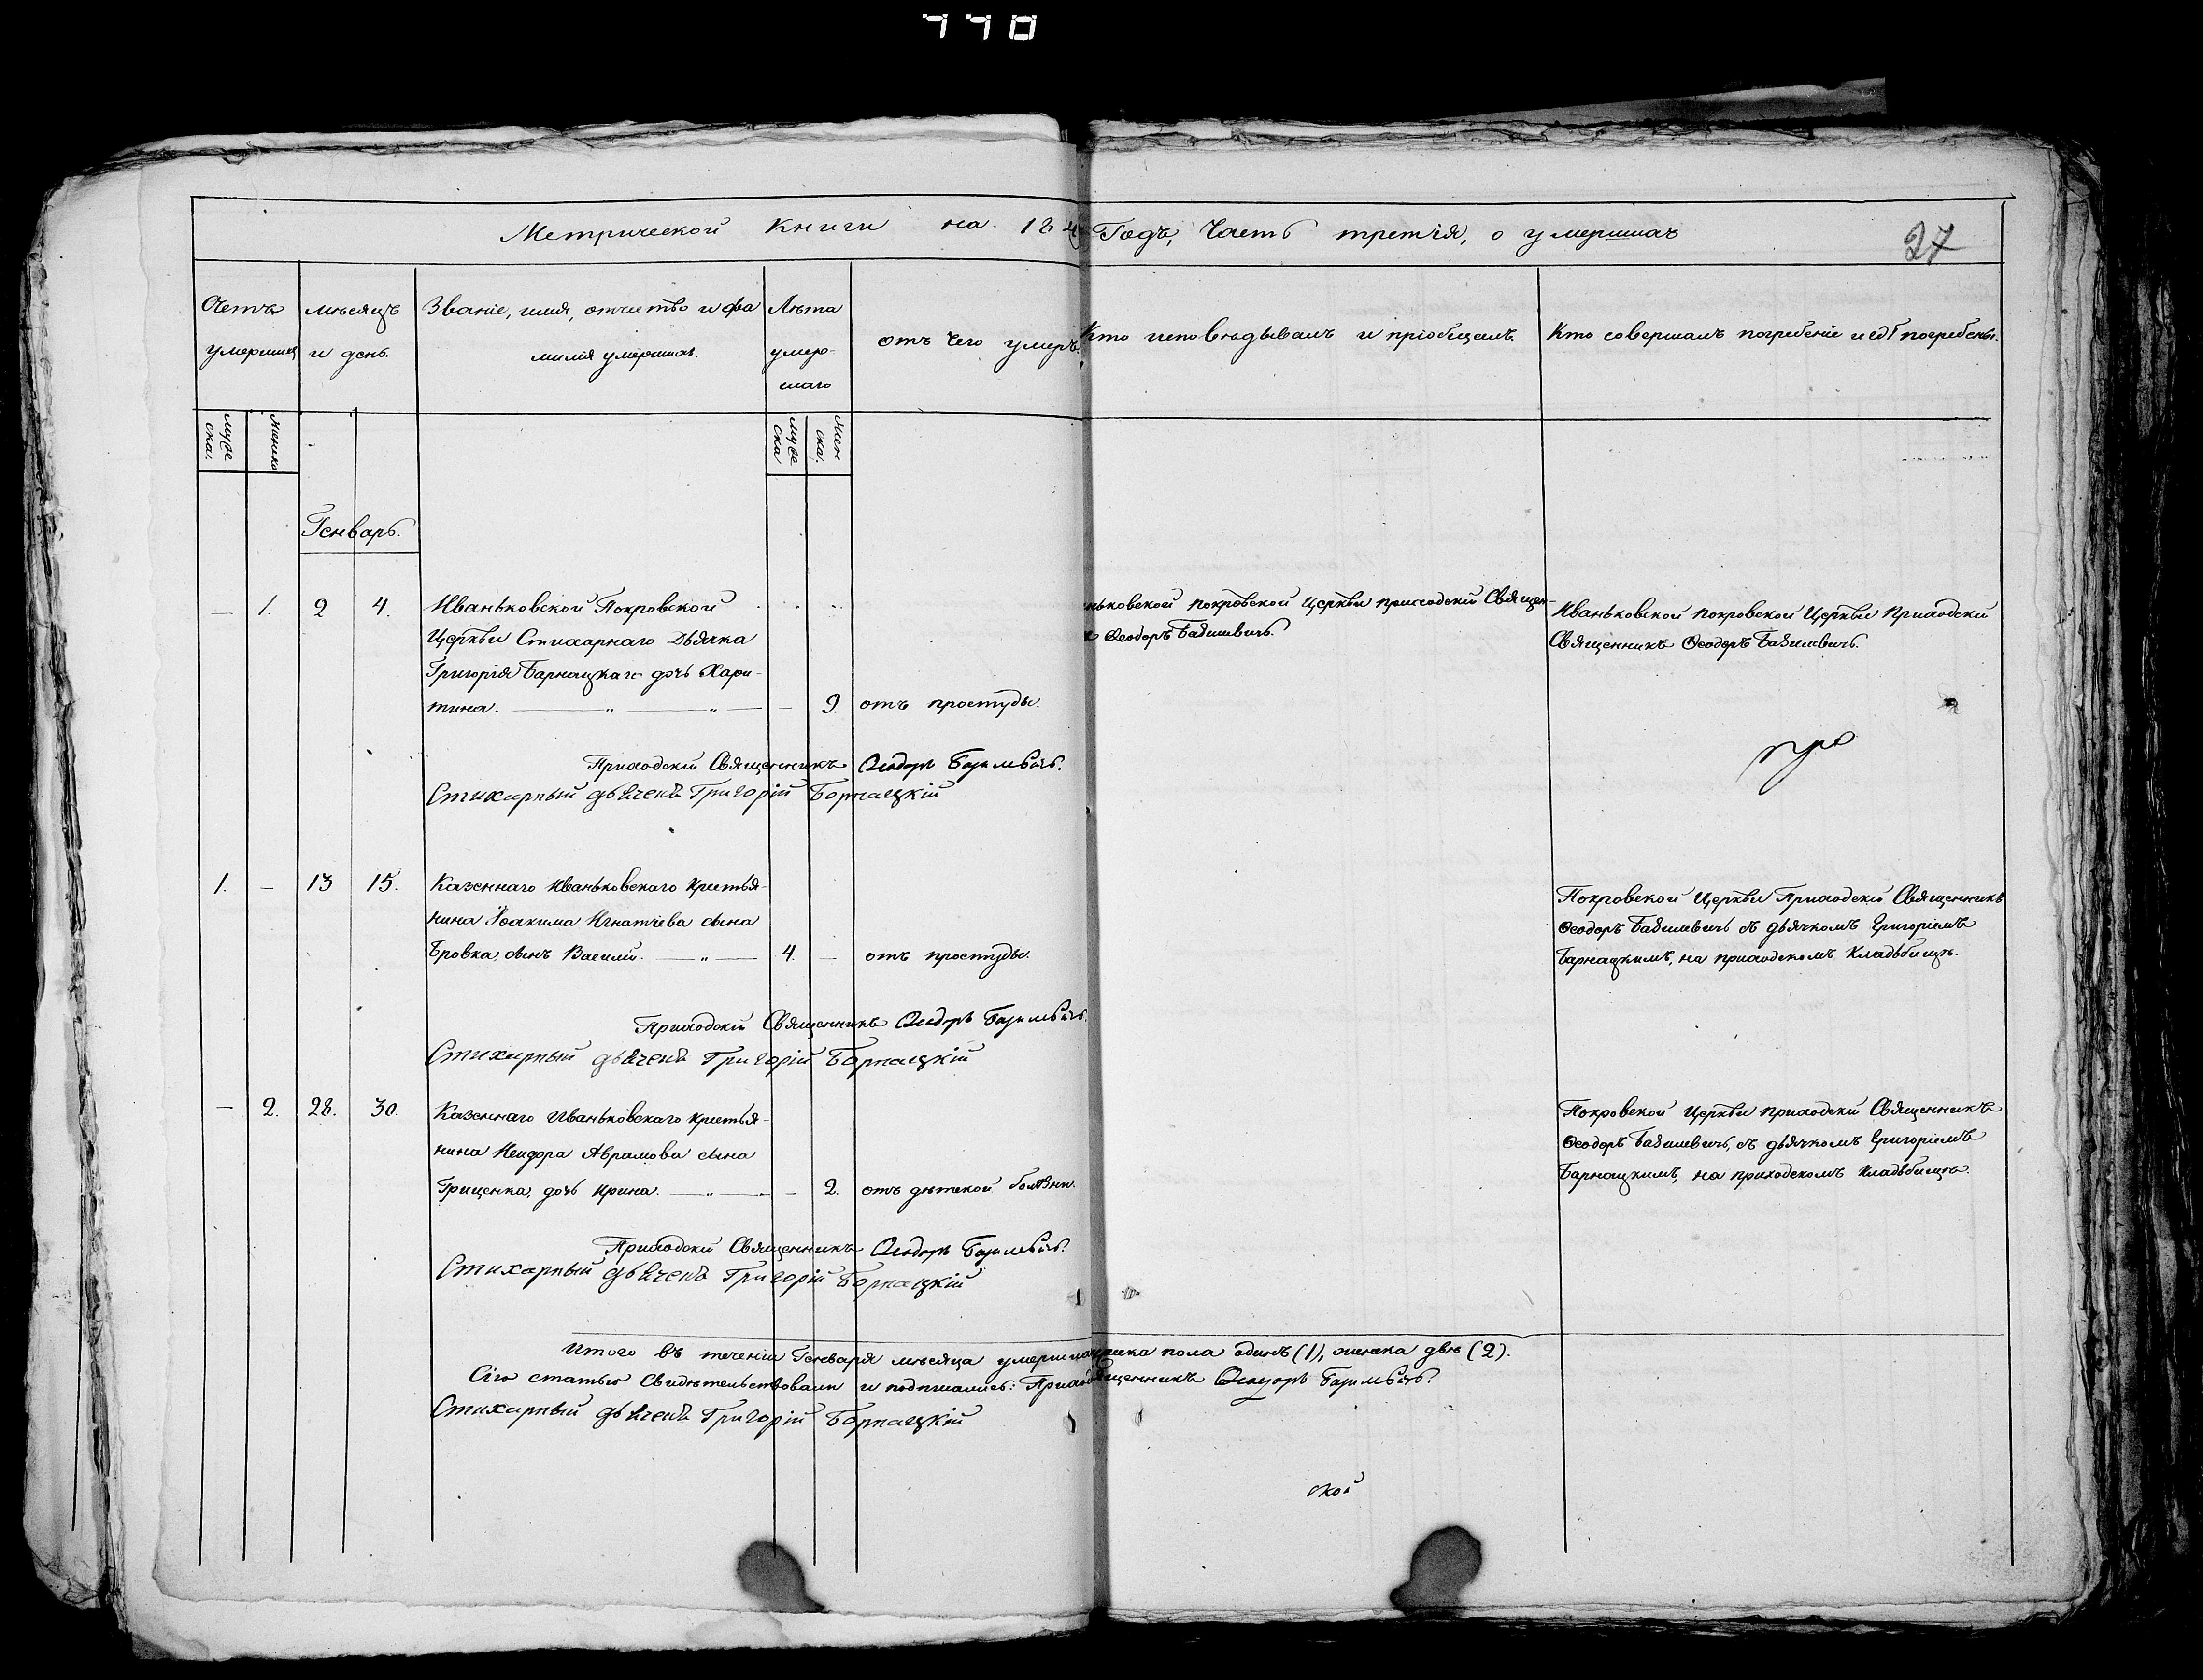 770
Метрической Книги на 184 Годъ, Часть третія, о умершихъ
27
Счетъ умершихъ
мѣсяцъ и день.
Званіе, имя, отчество и фа
милія умершихъ.
Лѣта
умер-
шаго
отъ чего умеръ.
Кто исповѣдывалъ и пріобщалъ
Кто совершалъ погребеніе и гдѣ погребены.
муже
ска.
женска
муже
ска
жен
ска.
Генварь.
— 1. 2 4. Иваньковской Покровской
Церкви Стихарнаго Дьячка
Григорія Барнацкаго дочь Хари-
тина. — „ — „ — — 9. отъ простуды.
ньковской покровской Церкви приходскій Священ-
къ Ѳеодоръ Базилевичь.
Иваньковской покровской Церкви Приходскій
Священникъ Ѳеодоръ Базилевичь.
Приходскій Священникъ Ѳеодоръ Базилевичь.
Стихарный дьячекъ Григорій Борнацкій
1. — 13 15. Казеннаго Иваньковскаго крестья-
нина Іоакима Игнатіева сына
Бровка, сынъ Василій. — „ — 4. — отъ простуды.
Покровской Церкви Приходскій Священникъ
Ѳеодоръ Базилевичь съ дьячкомъ Григоріемъ
Барнацкимъ, на приходскомъ Кладбищѣ.
Приходскій Священникъ Ѳеодоръ Базилевичь.
Стихарный дьячекъ Григорій Борнацкій
— 2. 28. 30. Казеннаго Иваньковскаго крестья-
нина Исидора Аврамова сына
Гриценка, дочь Ирина. — „ — — 2. отъ дѣтской болѣзни.
Покровской Церкви приходскій Священникъ
Ѳеодоръ Базилевичь, съ дьячкомъ Григоріемъ
Барнацкимъ, на приходскомъ Кладбищѣ.
Приходскій Священникъ Ѳеодоръ Базилевичь.
Стихарный дьячекъ Григорій Борнацкій
Итого въ теченіи Генваря мѣсяца умерши пола одинъ (1), женска двѣ (2).
Сію статью Свидѣтельствовали и подписались: Приход щенникъ Ѳеодоръ Базилевичь.
Стихарный дьячекъ Григорій Борнацкій
ской